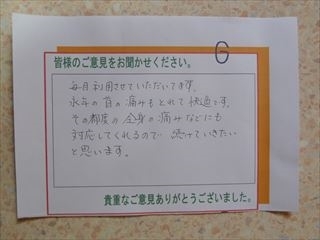 G
皆様のご意見をお聞かせください。
毎月利用させていただいてます。
永年の首の痛みもとれて快適です。
その都度の全身の痛みなどにも
対応してくれるので続けていきたい
と思います。
貴重なご意見ありがとうございました。